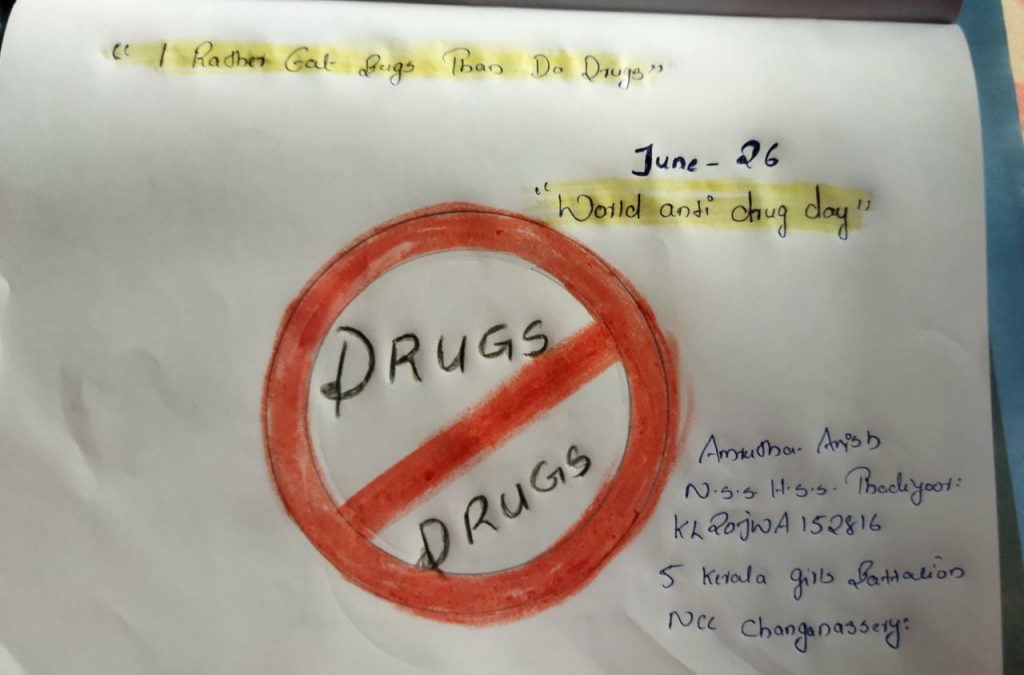 “ I Rather Eat Bugs Than Do Drugs”
June - 26
“World anti drug day”
DRUGS
DRUGS
Amrutha. Anish
N.s.s. H.s.s. Thadiyoor:
KL20JWA152816
5 Kerala girls Battalion
NCC Changanassery: